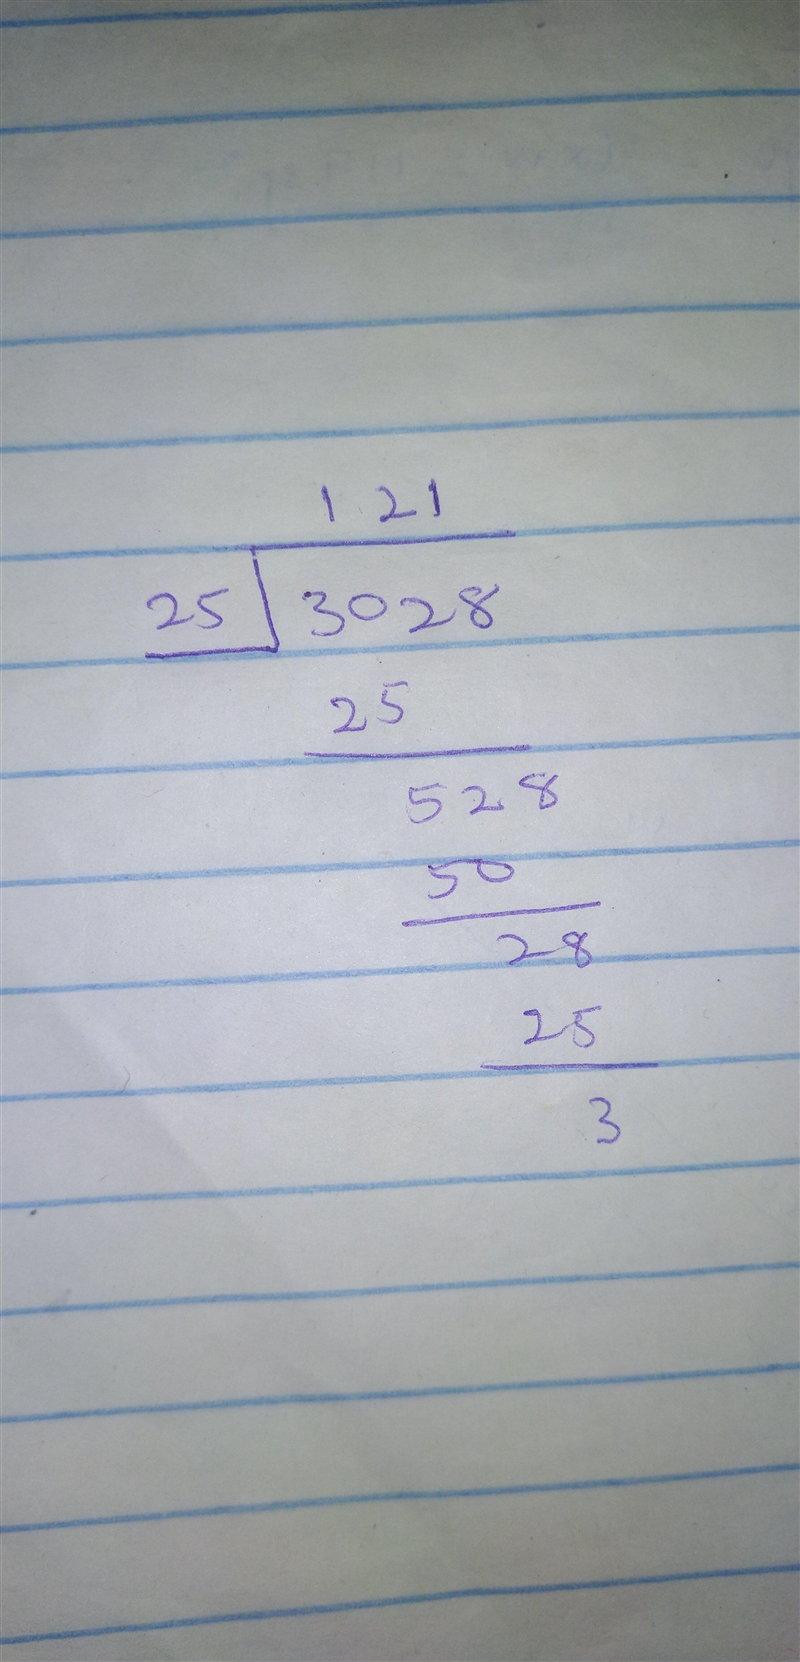 121
25 3028
25
528
50
28
25
3